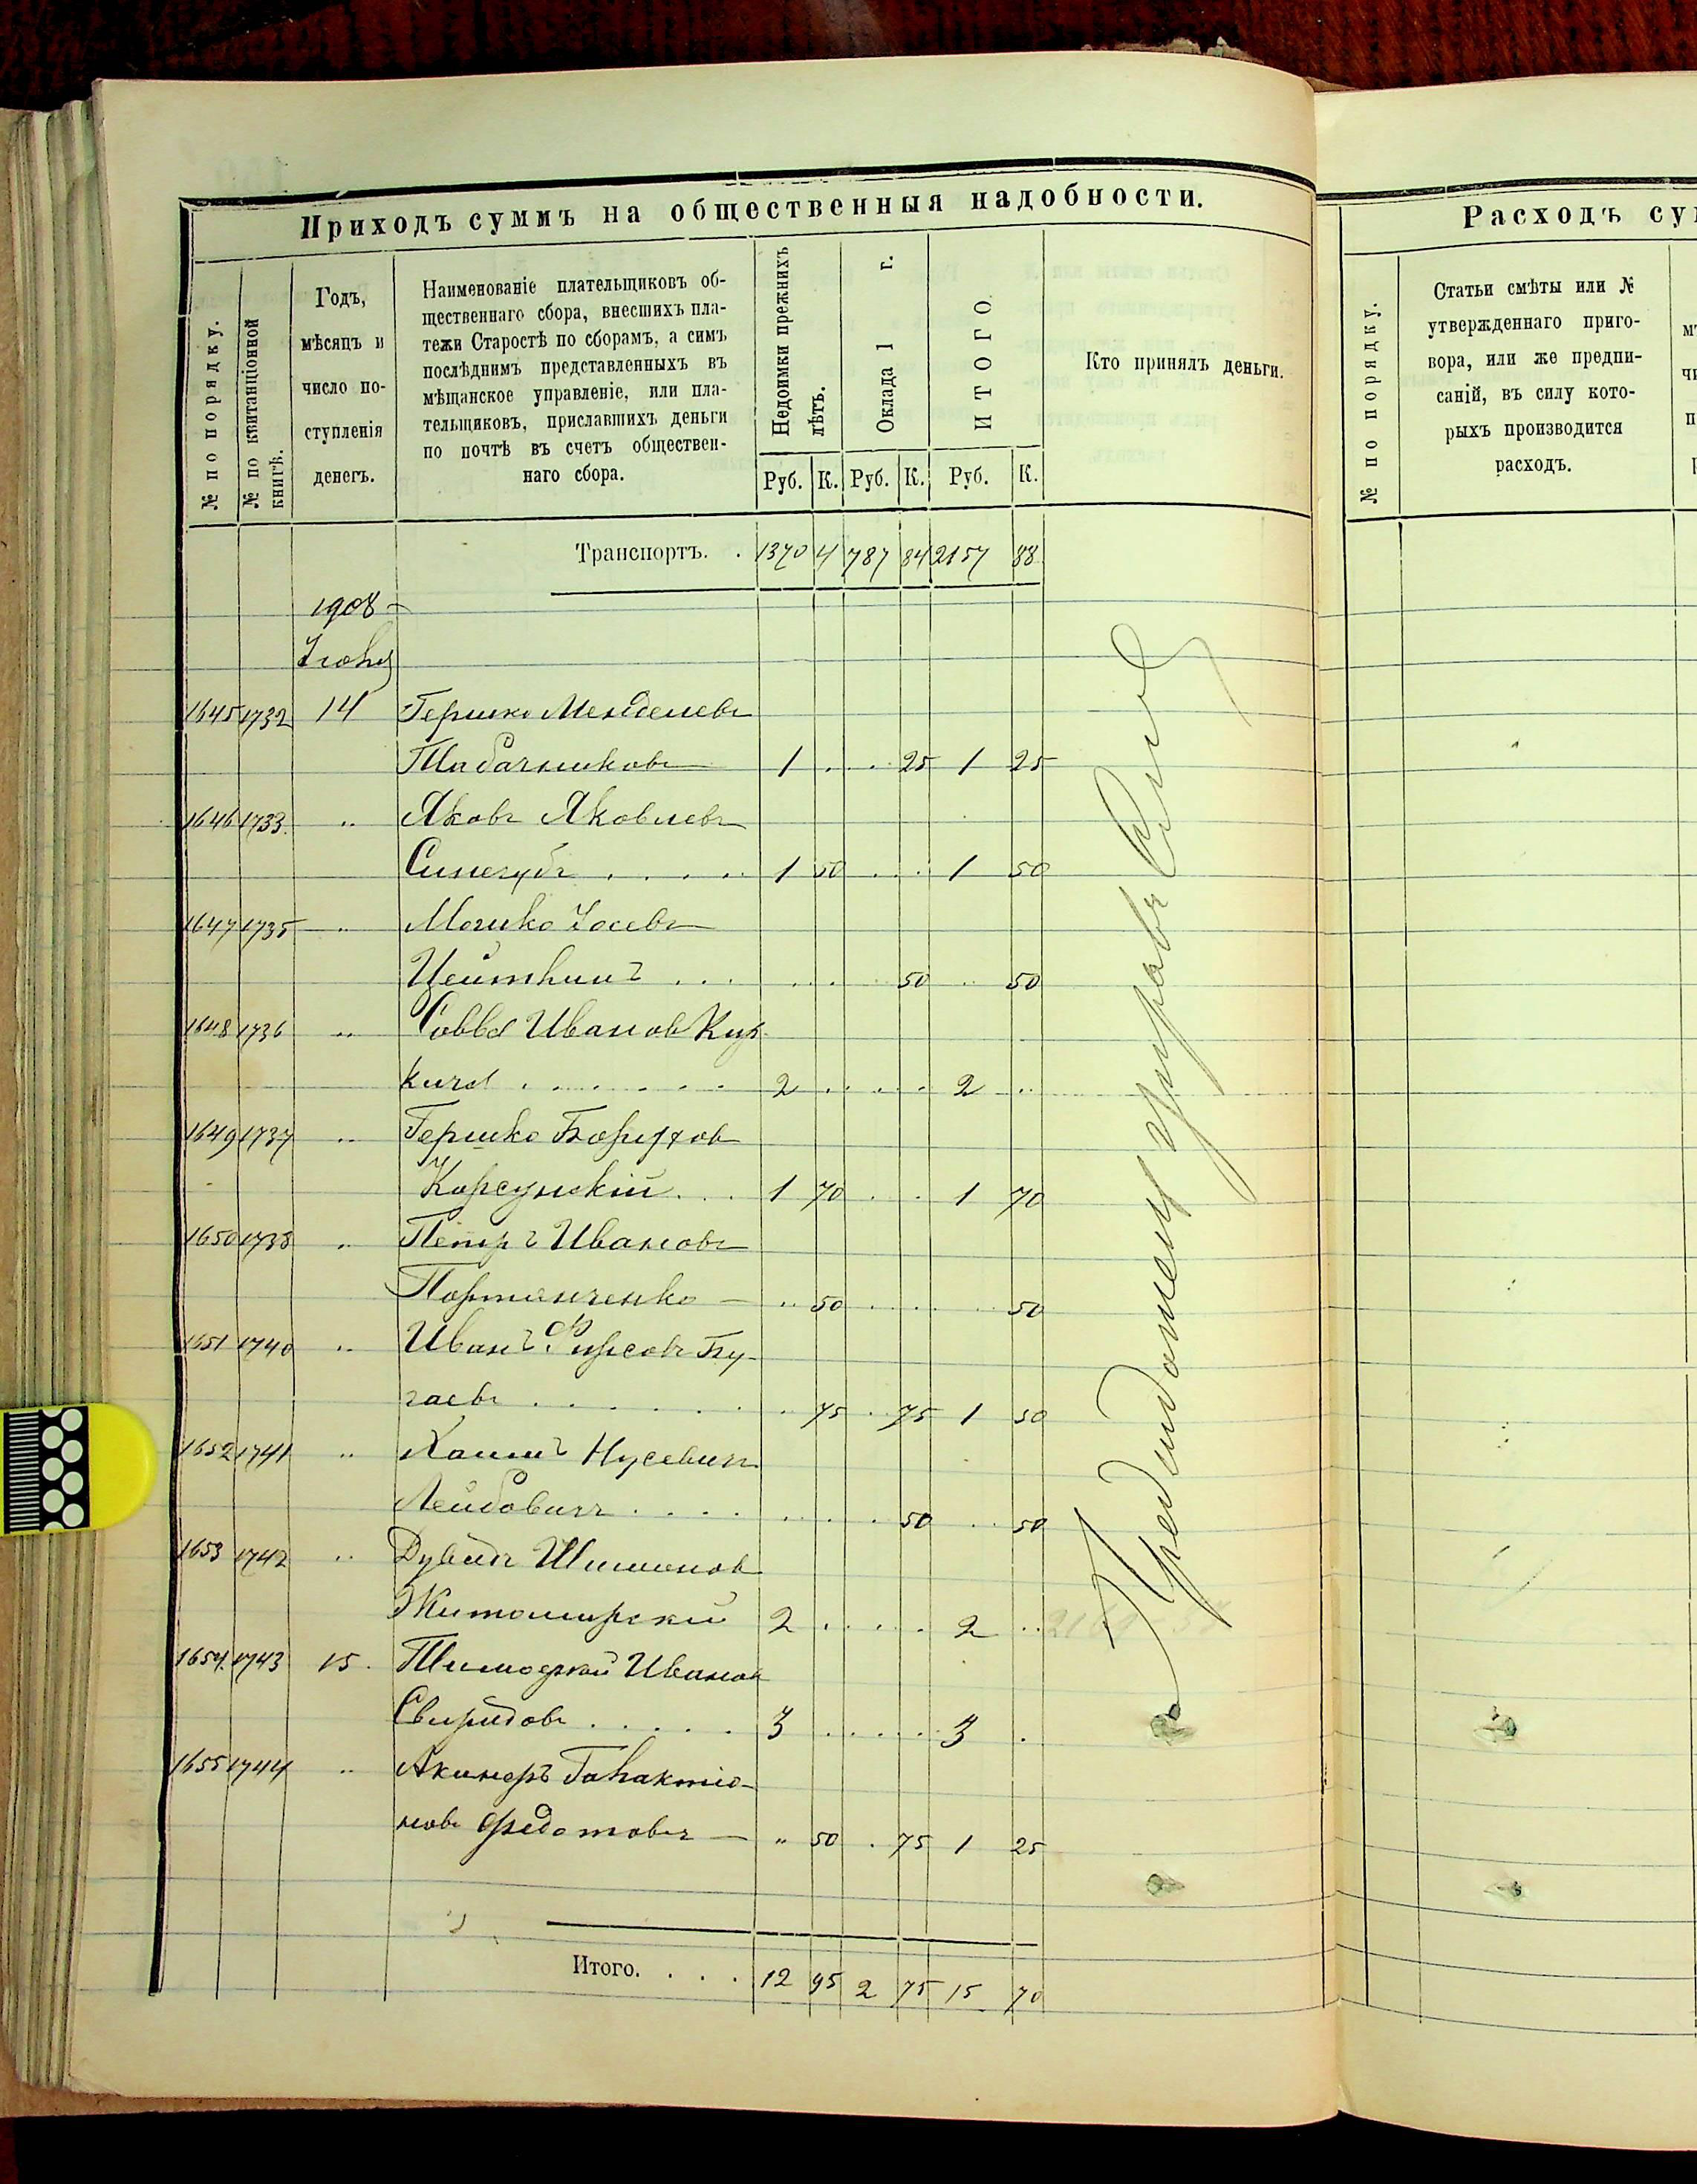 Приходъ суммъ на общественныя надобности.
№ по порядку.
№ по квитанціонной книгѣ.
Годъ,
мѣсяцъ и
число по-
ступленія
денегъ.
Наименованіе плательщиковъ об-
щественнаго сбора, внесшихъ пла-
тежи Старостѣ по сборамъ, а симъ
послѣднимъ представленныхъ въ
мѣщанское управленіе, или пла-
тельщиковъ, приславшихъ деньги
по почтѣ въ счетъ обществен-
наго сбора.
Недоимки прежнихъ лѣтъ.
Оклада 1 г.
ИТОГО
Кто принялъ деньги.
Руб. К. Руб. К. Руб. К.
Транспортъ. . 1370 4 787 84 2157 88
1908
Іюня
1645 1732 14 Гершко Менделевъ
Табачниковъ 1 . . . 25 1 25
1646 1733 " Яковъ Яковлевъ
Синегубъ . . . . . 1 50 . . . 1 50
1647 1735 " Мошко Іосевъ
Цейтлинъ . . . . . . 50 . . 50
1648 1736 " Савва Иванов
. . . . . . . 2 . . . . 2 ..
1649 1737 " Гершко Борухов
Корсунскій . . . 1 70 . . . 1 70
1650 1738 " Петръ Ивановъ
Портянченко — .. 50 . . . . . 50
1651 1740 " Иванъ Фирсовъ Бу-
гаевъ . . . . . . . 75 . 75 1 50
1652 1741 " Хаимъ Нусевичъ
Лейбовичъ . . . . . . . . 50 . . 50
1653 1742 " Дувидъ Шимонов
Житомирскій 2 . . . . . 2 ..
1654 1743 15 Тимофей Иванов
Свиридовъ . . . . . 3 . . . . . 3 .
1655 1744 "
новъ Федотовъ — " 50 . 75 1 25
Итого. . . . 12 95 2 75 15 70
Расходъ су
№ по порядку.
Статьи смѣты или №
утвержденнаго приго-
вора, или же предпи-
саній, въ силу кото-
рыхъ производится
расходъ.